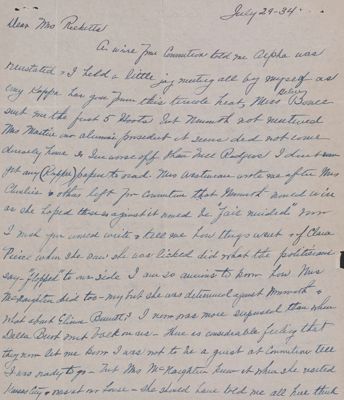 July 29-34.
Dear Mrs Ricketts
A wire from Convention told me Alpha was
reinstated & I held a little joy meeting all by myself as
every Kappa has gone from this terrible heat, Miss Bonee
sent me the first 5 Hoots but Monmouth not mentioned
Mrs our alumni president it seems did not come
directly home so I'm worse off than Will Rodgers I don't
get any (Kappa) papers to read. Mrs Westerman wrote me after Mrs
& others left for Convention that Monmouth would win
as she hoped those against it would be "fair minded" now
I wish you would write & tell me how things went & if Clara
Pierce when she saw she was licked did what the politicians
say "flopped" to our side I am so anxious to know how Mrs
McNaughton did too - my but she was determined against Monmouth &
what about Eleanor Bennett? I never was more surprised than when
Della Burt went back on us - there is considerable feeling that
they never let me know I was not to be a guest at Convention till
I was ready to go - but Mrs McNaughton knew it when she visited
Kansas City & was at our house - she should have told me all here think